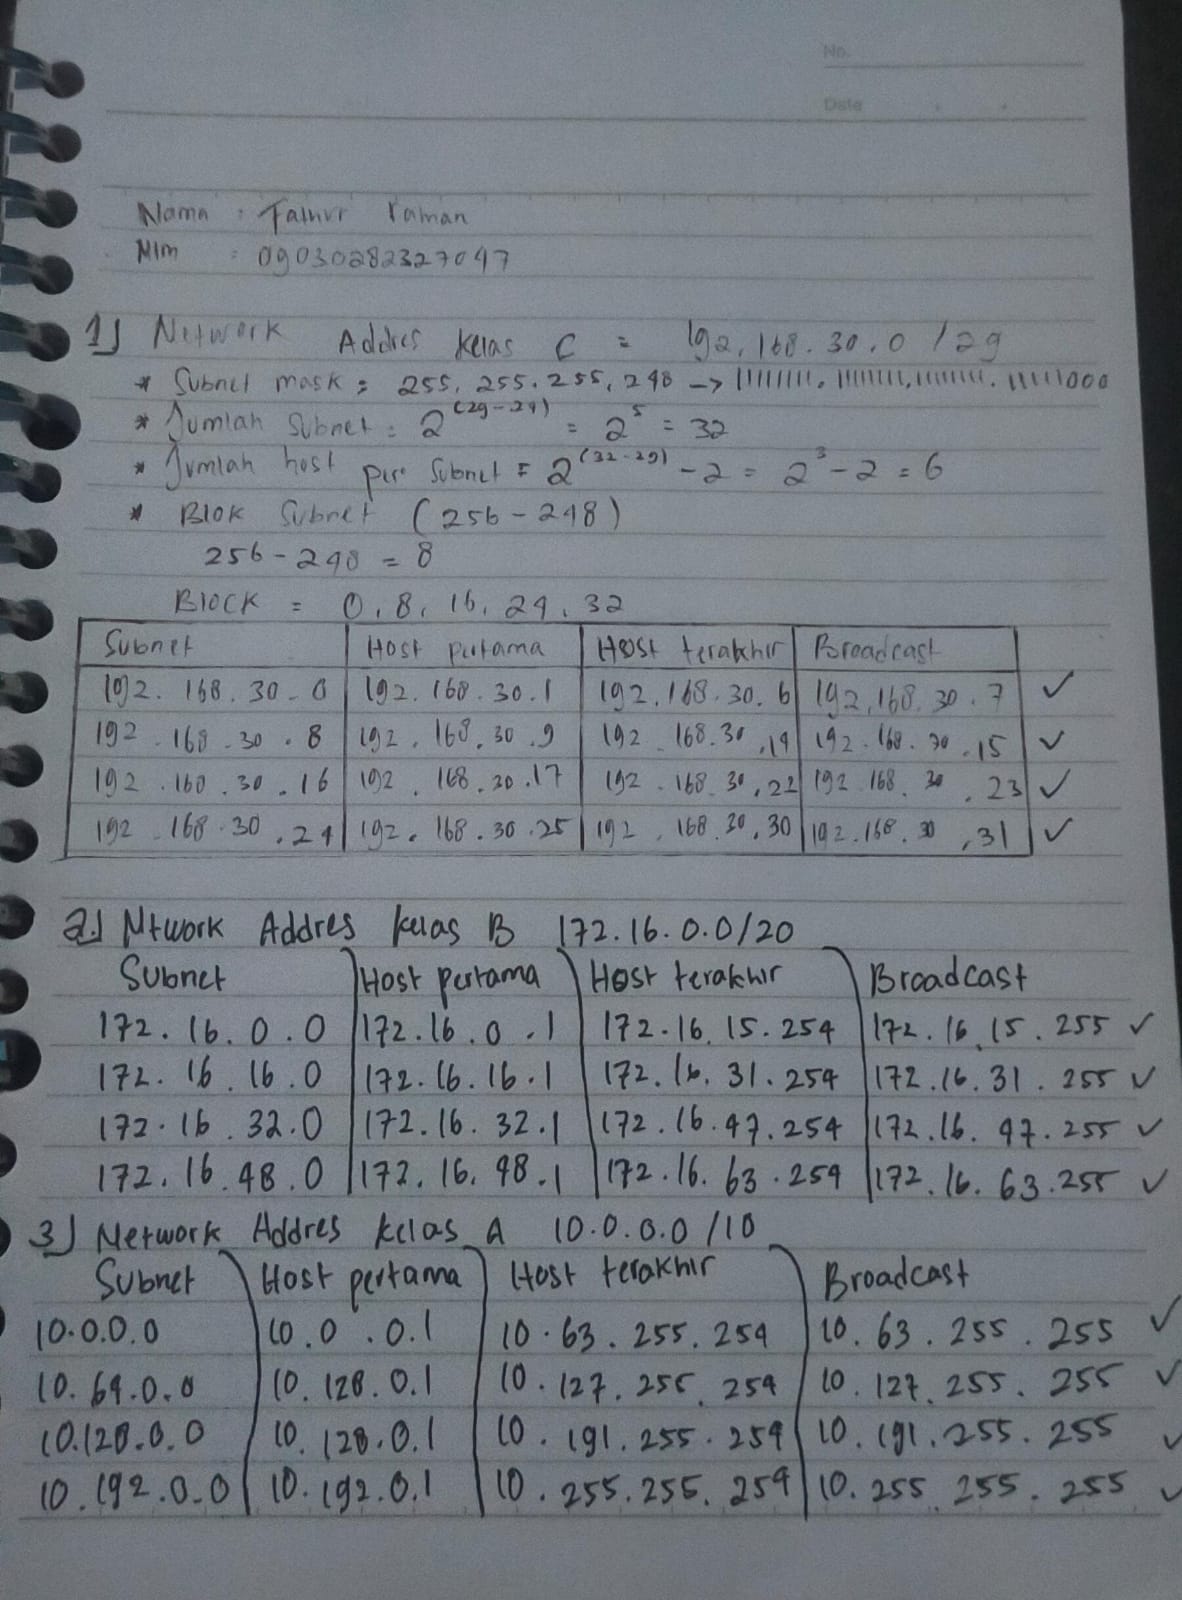 No.
Date
Nama : Fathur raman
NIm : 09030282327047
1) Network Addres kelas C = 192.168.30.0 /29
* Subnet mask = 255.255.255.248 -> 11111111.11111111.11111111.11111000
* Jumlah Subnet = 2^(29-24) = 2^5 = 32
* Jumlah host per Subnet = 2^(32-29) - 2 = 2^3 - 2 = 6
* Blok Subnet (256 - 248)
256 - 248 = 8
Block = 0, 8, 16, 24, 32
Subnet Host pertama Host terakhir Broadcast
192.168.30.0 192.168.30.1 192.168.30.6 192.168.30.7 ✓
192.168.30.8 192.168.30.9 192.168.30.14 192.168.30.15 ✓
192.168.30.16 192.168.30.17 192.168.30.22 192.168.30.23 ✓
192.168.30.24 192.168.30.25 192.168.30.30 192.168.30.31 ✓
2.) Ntwork Addres kelas B 172.16.0.0/20
Subnet Host pertama Host terakhir Broadcast
172.16.0.0 172.16.0.1 172.16.15.254 172.16.15.255 ✓
172.16.16.0 172.16.16.1 172.16.31.254 172.16.31.255 ✓
172.16.32.0 172.16.32.1 172.16.47.254 172.16.47.255 ✓
172.16.48.0 172.16.48.1 172.16.63.254 172.16.63.255 ✓
3) Network Addres kelas A 10.0.0.0/10
Subnet Host pertama Host terakhir Broadcast
10.0.0.0 10.0.0.1 10.63.255.254 10.63.255.255 ✓
10.64.0.0 10.128.0.1 10.127.255.254 10.127.255.255 ✓
10.128.0.0 10.128.0.1 10.191.255.254 10.191.255.255 ✓
10.192.0.0 10.192.0.1 10.255.255.254 10.255.255.255 ✓